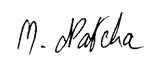 M. Natcha